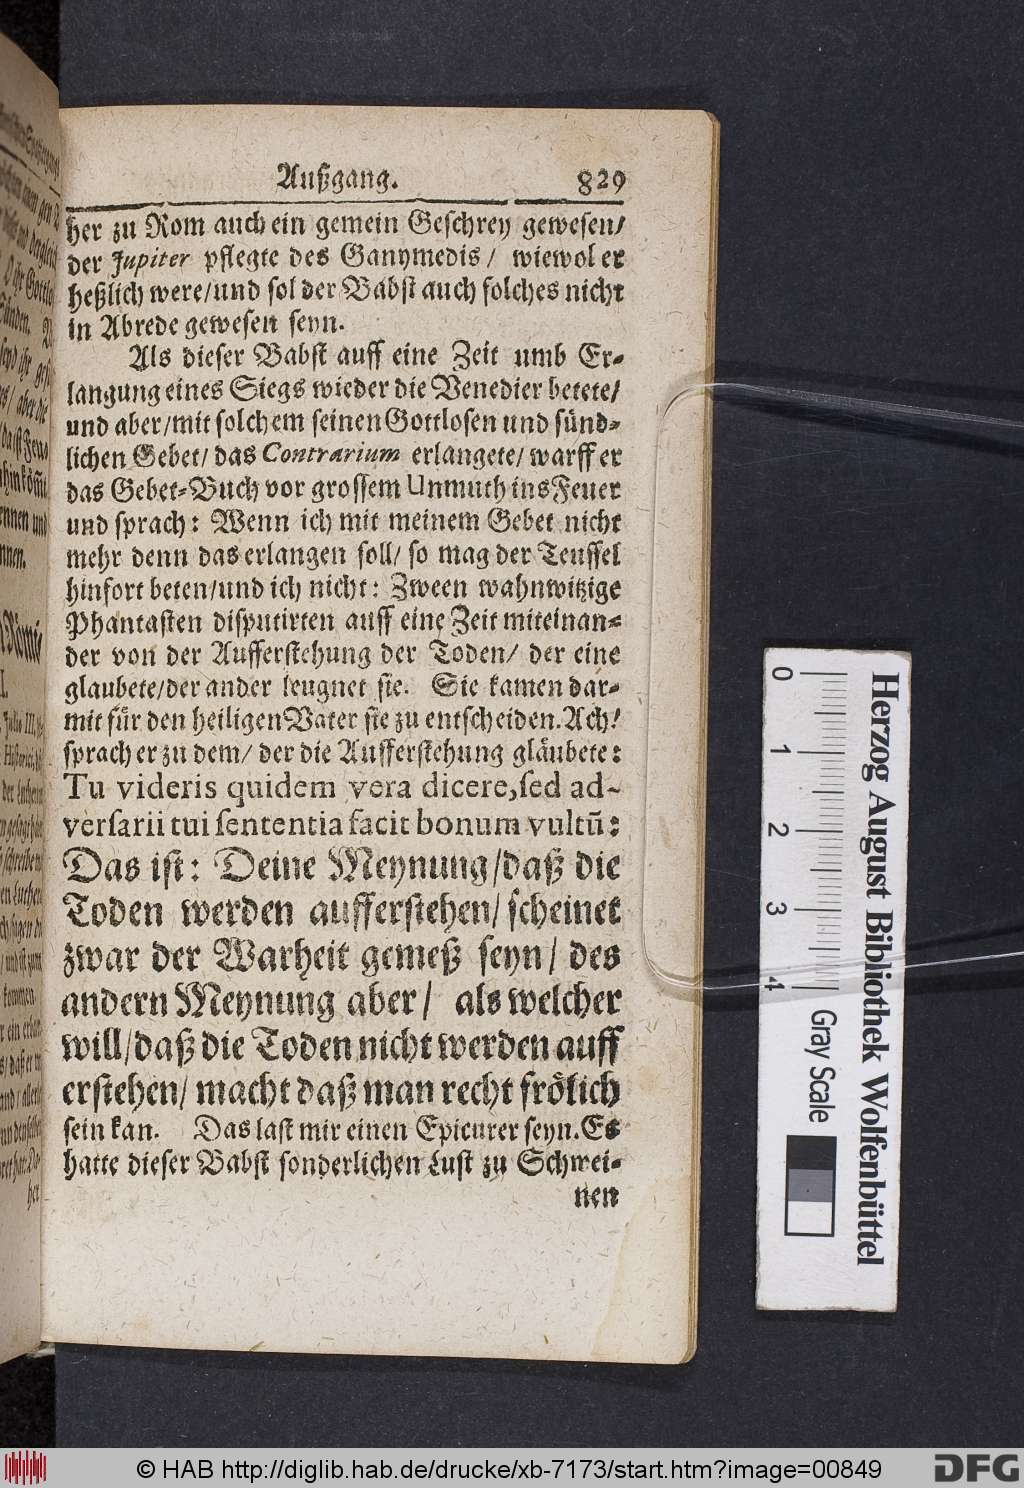 Außgang. 829
her zu Rom auch ein gemein Geschrey gewesen/
der Jupiter pflegte des Ganymedis / wiewol er
heßlich were/und sol der Babst auch solches nicht
in Abrede gewesen seyn.
Als dieser Babst auff eine Zeit umb Er-
langung eines Siegs wieder die Venedier betete/
und aber/mit solchem seinen Gottlosen und sünd-
lichen Gebet/ das Contrarium erlangete/ warff er
das Gebet-Buch vor grossem Unmuth ins Feuer
und sprach: Wenn ich mit meinem Gebet nicht
mehr denn das erlangen soll/ so mag der Teuffel
hinfort beten/und ich nicht: Zween wahnwitzige
Phantasten disputirten auff eine Zeit miteinan-
der von der Aufferstehung der Toden/ der eine
glaubete/der ander leugnet sie. Sie kamen dar-
mit für den heiligen Vater sie zu entscheiden. Ach!
sprach er zu dem/ der die Aufferstehung gläubete:
Tu videris quidem vera dicere, sed ad-
versarii tui sententia facit bonum vultū:
Das ist: Deine Meynung/daß die
Toden werden aufferstehen/ scheinet
zwar der Warheit gemeß seyn/ des
andern Meynung aber/ als welcher
will/daß die Toden nicht werden auff
erstehen/ macht daß man recht frölich
sein kan. Das last mir einen Epicurer seyn. Es
hatte dieser Babst sonderlichen Lust zu Schwei-
nen
0 1 2 3 4
Gray Scale
Herzog August Bibliothek Wolfenbüttel
© HAB http://diglib.hab.de/drucke/xb-7173/start.htm?image=00849
DFG